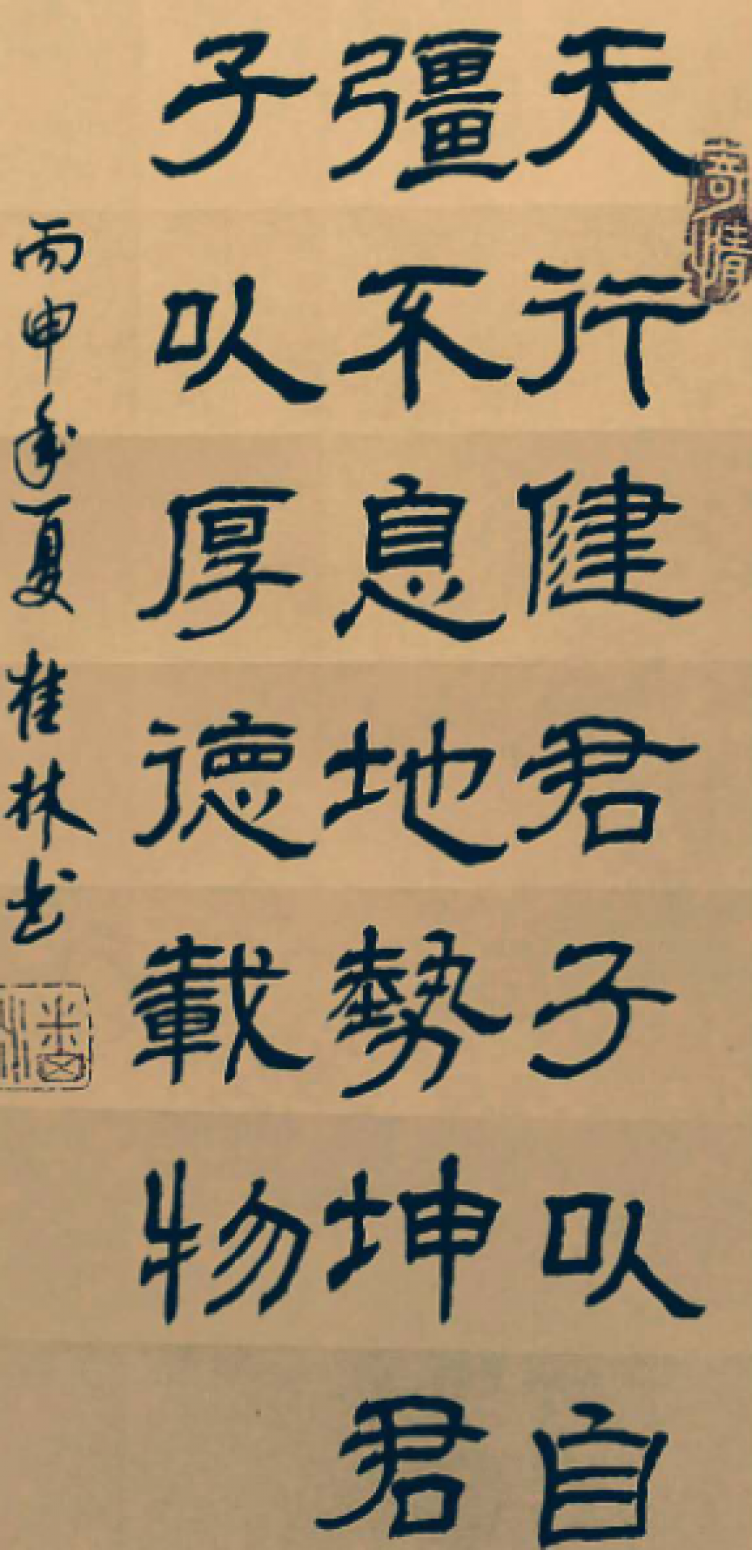 天行健君子以自
彊不息地勢坤君
子以厚德載物
丙申年夏桂林书